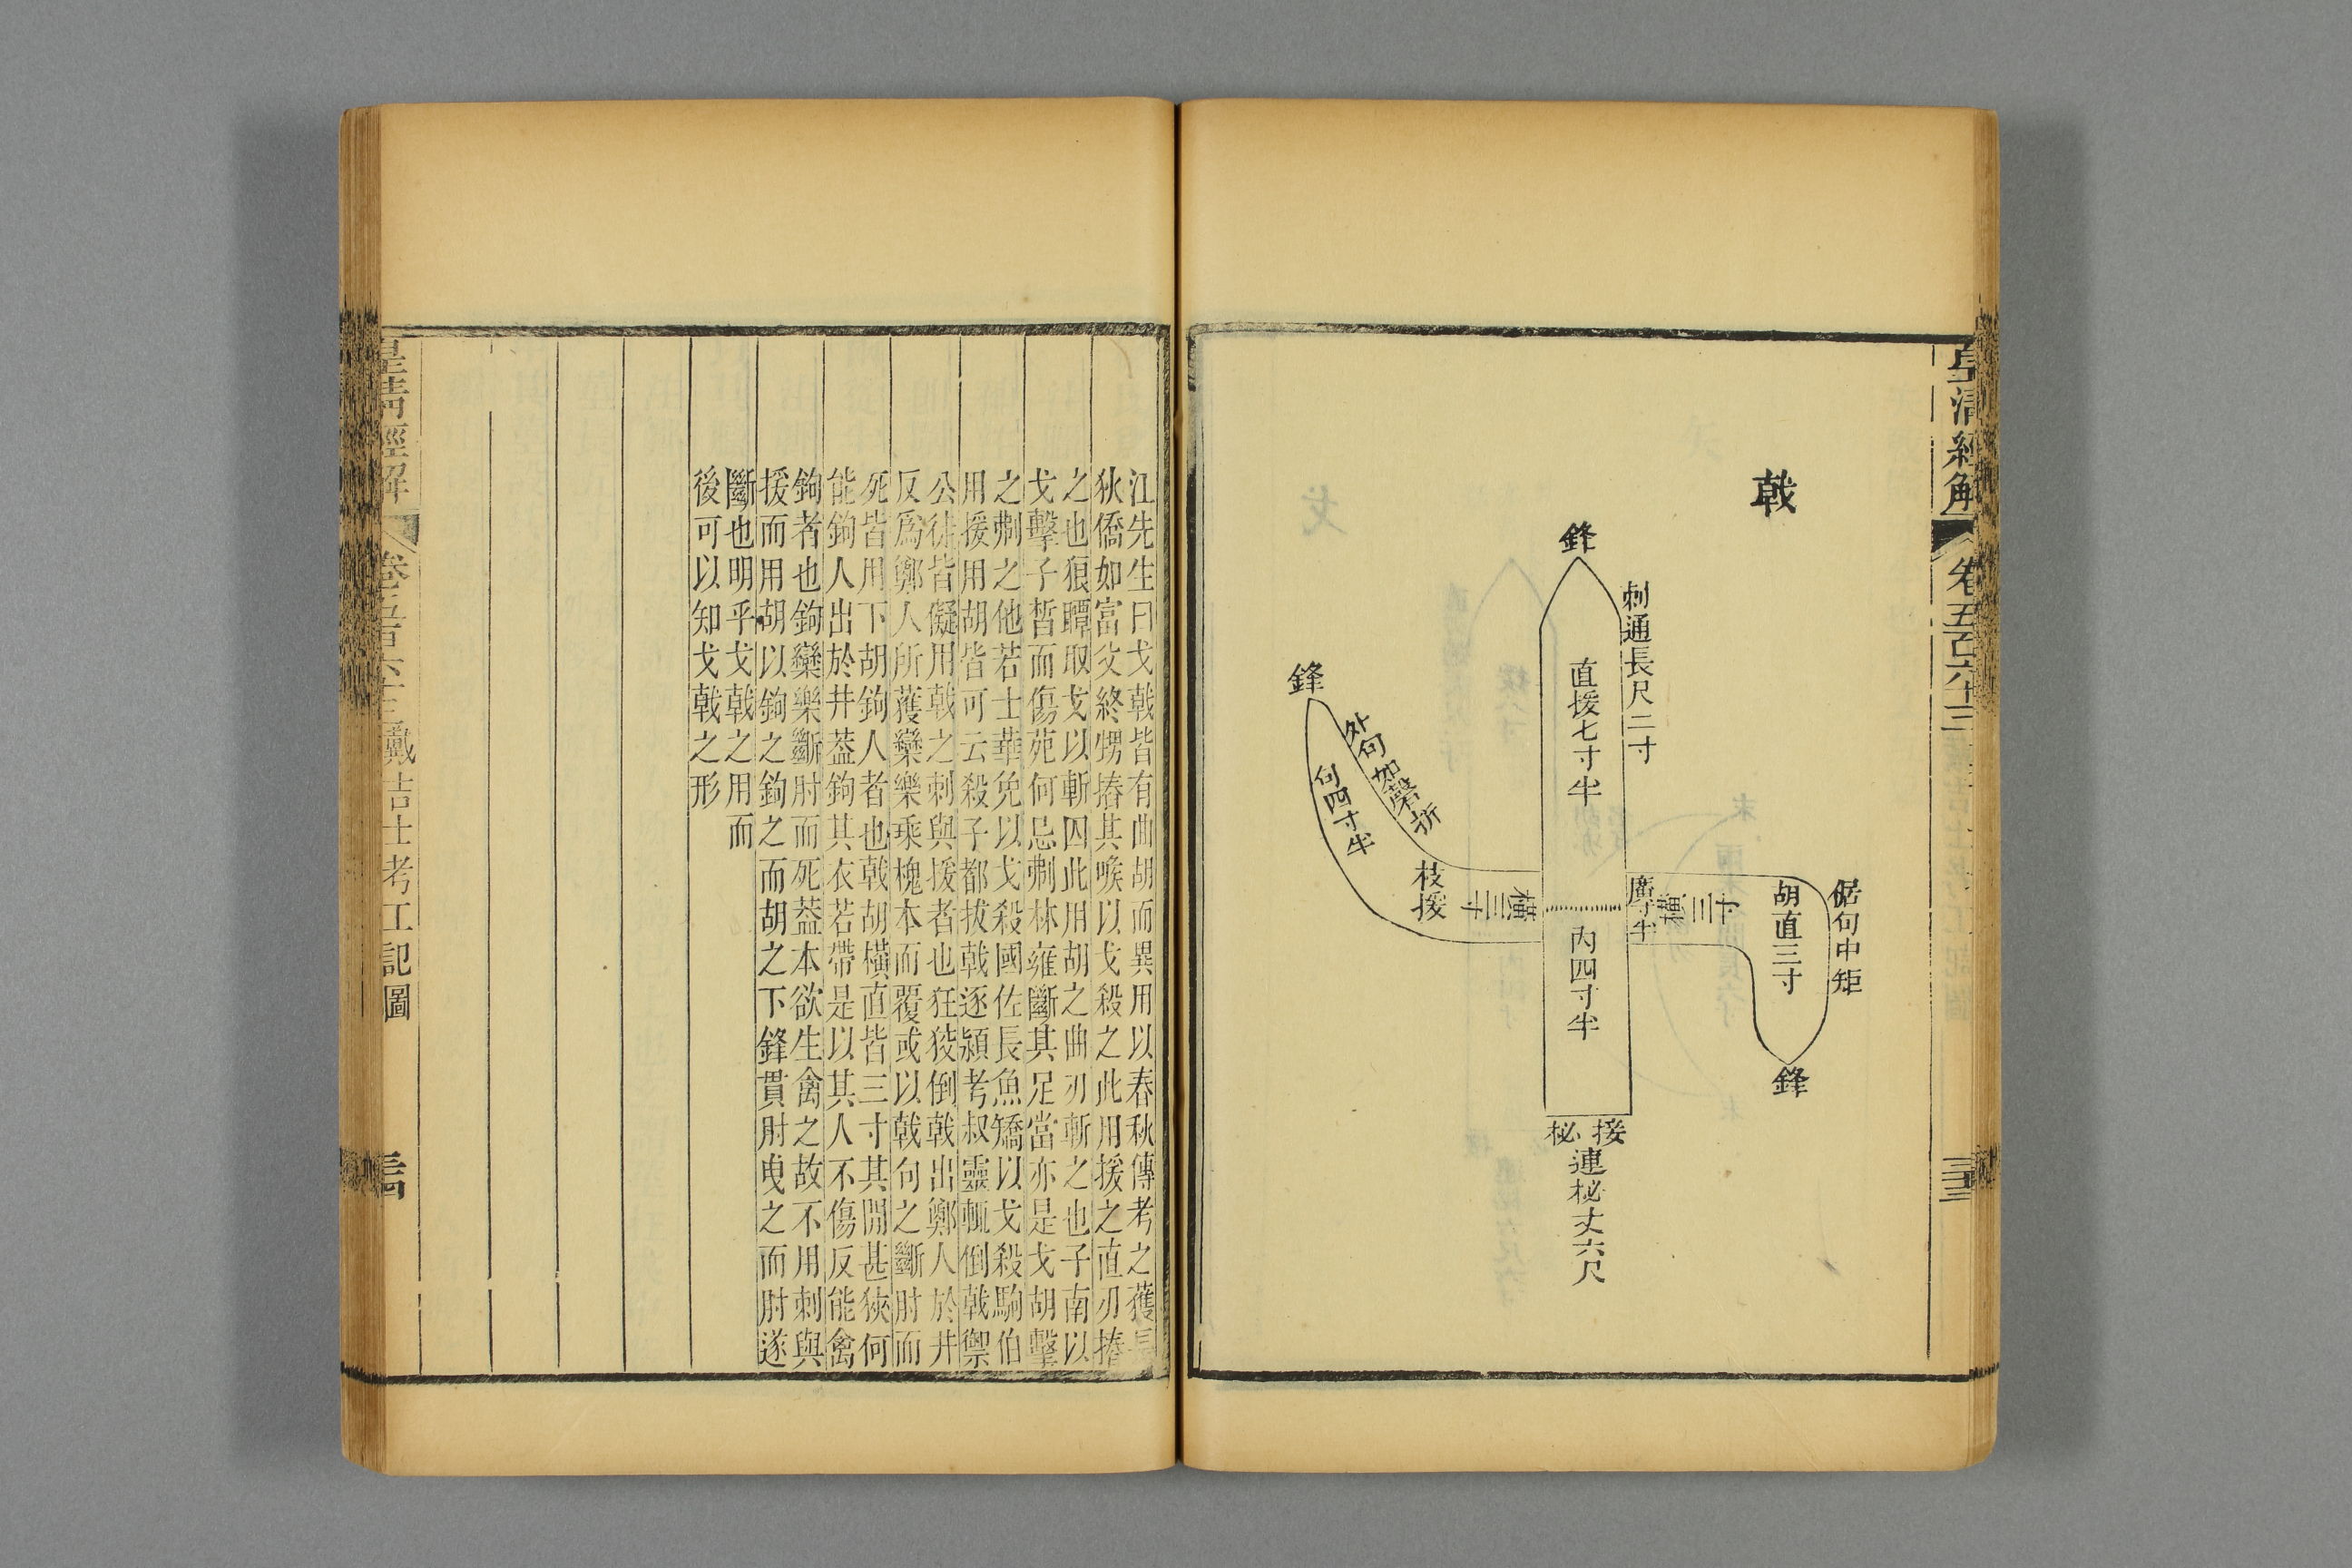 皇清經解
卷五百六十三
三十三
戟
鋒
刺通長尺二寸
直援七寸半
鋒
外句如磬折
句四寸半
枝援
橫三寸
廣寸半
橫三寸
胡直三寸
倨句中矩
鋒
內四寸半
接柲
連柲丈六尺
江先生曰戈戟皆有曲胡而異用以春秋傳考之獲長
狄僑如富父終甥摏其喉以戈殺之此用援之直刃摏
之也狼瞫取戈以斬囚此用胡之曲刃斬之也子南以
戈擊子晳而傷苑何忌刜林雍斷其足當亦是戈胡擊
之刜之他若士華免以戈殺國佐長魚矯以戈殺駒伯
用援用胡皆可云殺子都拔戟逐潁考叔靈輒倒戟禦
公徒皆儗用戟之刺與援者也狂狡倒戟出鄭人於井
反爲鄭人所獲欒樂乘槐本而覆或以戟句之斷肘而
死皆用下胡鉤人者也戟胡橫直皆三寸其閒甚狹何
能鉤人出於井葢鉤其衣若帶是以其人不傷反能禽
鉤者也鉤欒樂斷肘而死葢本欲生禽之故不用刺與
援而用胡以鉤之鉤之而胡之下鋒貫肘曳之而肘遂
斷也明乎戈戟之用而
後可以知戈戟之形
皇清經解
卷五百六十三
戴吉士考工記圖